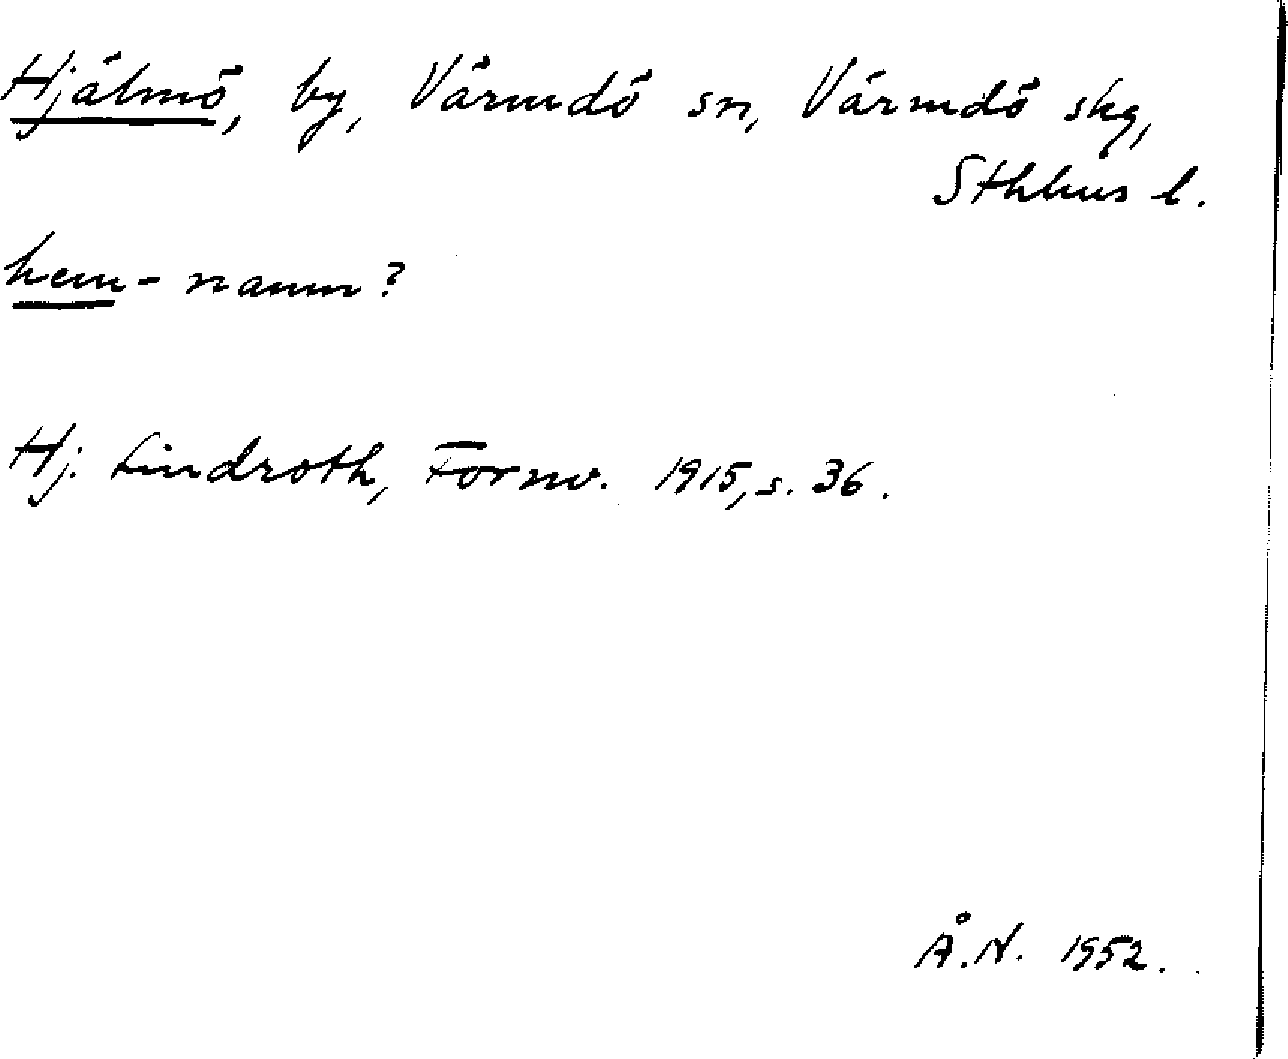 Hjälmö, by, Värmdö sn, Värmdö skg,
Sthlms l.
hem-namn?
Hj. Lindroth, Fornv. 1915, s. 36.
Å.N. 1952.